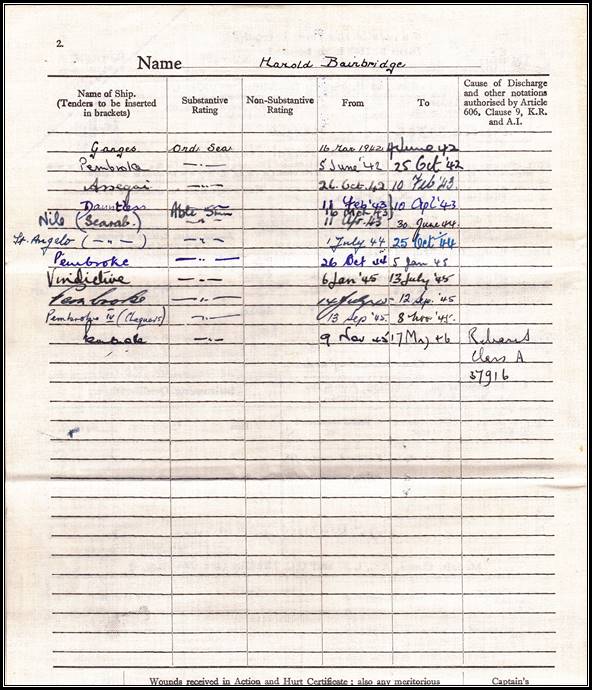 2.
Name Harold Bainbridge
Name of Ship. (Tenders to be inserted in brackets) Substantive Rating Non-Substantive Rating From To Cause of Discharge and other notations authorised by Article 606, Clause 9, K.R. and A.I.
Ganges Ord. Sea 16 Mar 1942 4 June 42
Pembroke —"— 5 June '42 25 Oct '42
Assegai —"— 26. Oct. 42 10 Feb '43.
Dauntless 11 Feb '43 10 Apl '43
Able Smn 16 Mar 43
Nile (Scarab.) —"— 11 Apr '43 30 June 44.
St. Angelo (—"—) —"— 1 July 44 25 Oct '44
Pembroke —"— 26 Oct 44 5 Jan '45
Vindictive —"— 6 Jan '45 13 July '45
Pembroke —"— 14 July 12 Sep. '45
Pembroke IV (Chequers) —"— 13 Sep '45. 8 Nov '45.
—"— 9 Nov 45 17 May 46 Released
Class A
37916
Wounds received in Action and Hurt Certificate ; also any meritorious Captain's